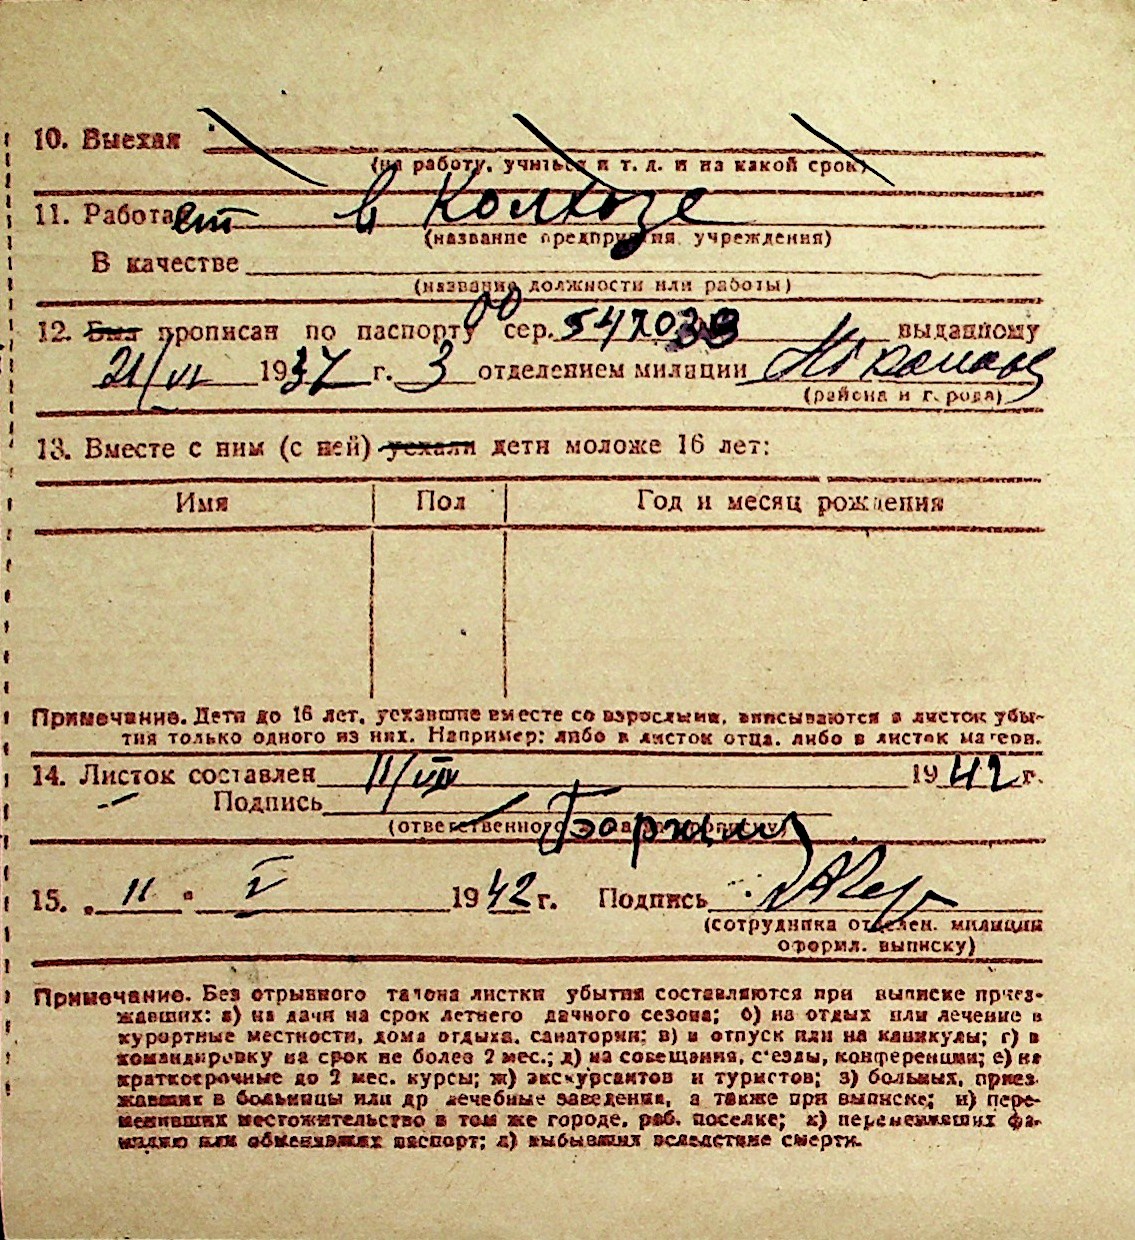 10. Выехал
(на работу, учиться и т. д. и на какой срок)
11. Работает в Колхозе
(название предприятия, учреждения)
В качестве
(название должности или работы)
12. Был прописан по паспорту 00 сер. 547033 выданному
21/VI 1937 г. 3 отделением милиции
(района и города)
13. Вместе с ним (с ней) уехали дети моложе 16 лет:
Имя Пол Год и месяц рождения
Примечание. Дети до 16 лет, уехавшие вместе со взрослыми, вписываются в листок убы-
тия только одного из них. Например: либо в листок отца, либо в листок матери.
14. Листок составлен 11/VIII 1942 г.
Подпись
(ответственного за прописку)
15. „ 11 " V 1942 г. Подпись
(сотрудника отделен. милиции
оформл. выписку)
Примечание. Без отрывного талона листки убытия составляются при выписке приез-
жавших: а) на дачи на срок летнего дачного сезона; б) на отдых или лечение в
курортные местности, дома отдыха, санатории; в) в отпуск или на каникулы; г) в
командировку на срок не более 2 мес.; д) на совещания, с'езды, конференции; е) на
краткосрочные до 2 мес. курсы; ж) экскурсантов и туристов; з) больных, приез-
жавших в больницы или др лечебные заведения, а также при выписке; и) пере-
менивших местожительство в том же городе, раб. поселке; к) переменивших фа-
милию или обменявших паспорт; л) выбывших вследствие смерти.